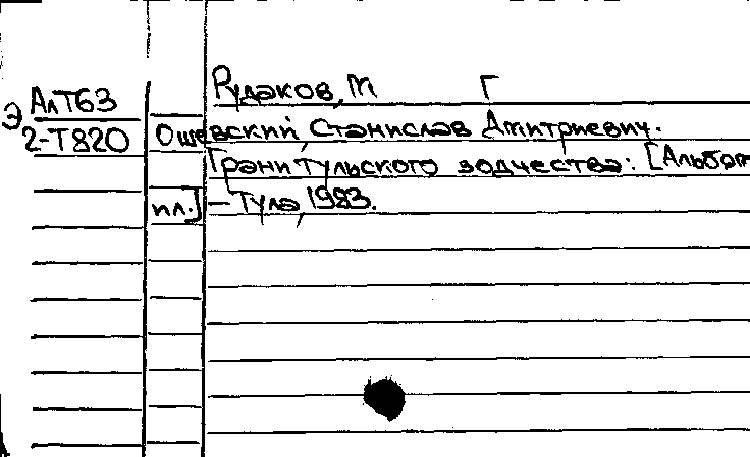 Рудаков, М Г
АлТ63
Э
2-Т820 Ошевский, Станислав Дмитриевич.
Грани тульского зодчества: [Альбом
пл.] - Тула, 1983.